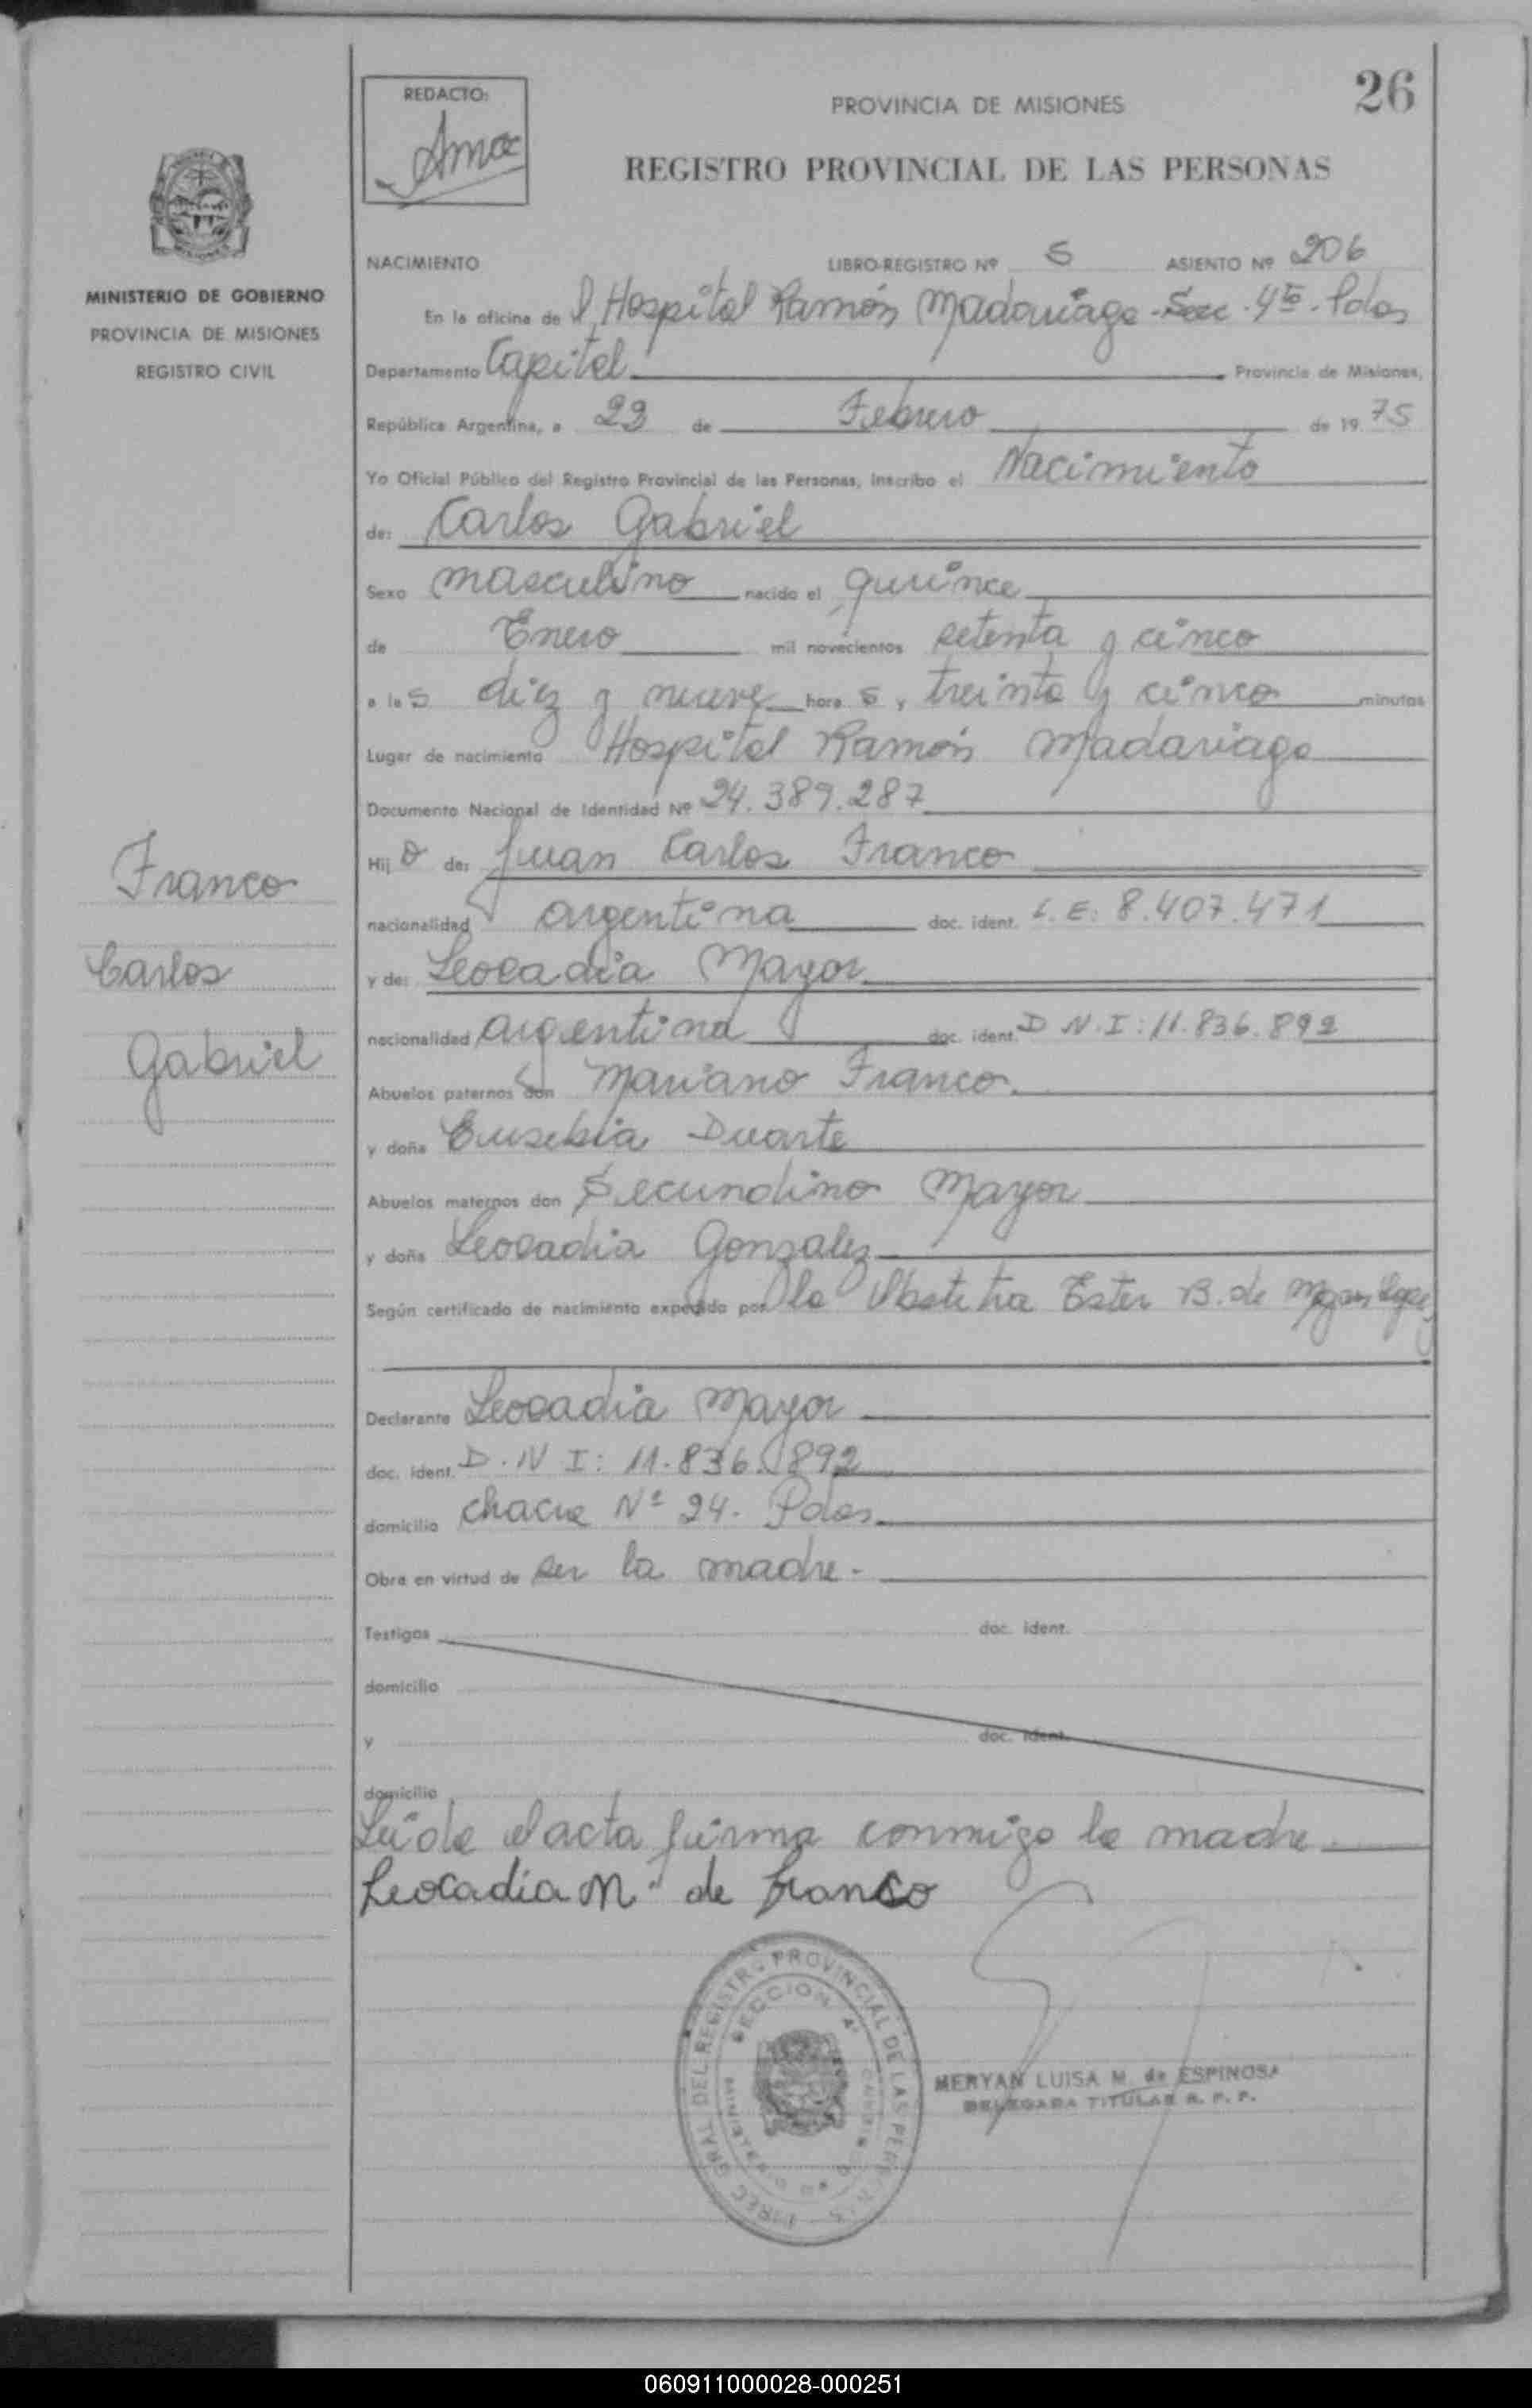 26
REDACTO:
PROVINCIA DE MISIONES
REGISTRO PROVINCIAL DE LAS PERSONAS
MINISTERIO DE GOBIERNO
PROVINCIA DE MISIONES
REGISTRO CIVIL
NACIMIENTO LIBRO-REGISTRO Nº 5 ASIENTO Nº 206
En la oficina de l Hospital Ramón Madariaga - Secc. 4ta. Pdas
Departamento Capital Provincia de Misiones,
República Argentina, a 22 de Febrero de 1975
Yo Oficial Público del Registro Provincial de las Personas, inscribo el Nacimiento
de: Carlos Gabriel
Sexo masculino nacido el quince
de Enero mil novecientos setenta y cinco
a las diez y nueve horas y, treinta y cinco minutos
Lugar de nacimiento Hospital Ramón Madariaga
Documento Nacional de Identidad Nº 24.389.287
Hijo de: Juan Carlos Franco
nacionalidad argentina doc. ident. L.E: 8.407.471
y de: Leocadia Mayor
nacionalidad argentina doc. ident. D N.I: 11.836.892
Abuelos paternos don Mariano Franco.
y doña Eusebia Duarte
Abuelos maternos don Secundino Mayor
y doña Leocadia Gonzalez
Según certificado de nacimiento expedido por la Obstetra Ester B. de
Declarante Leocadia Mayor
doc. ident. D.N I: 11.836.892
domicilio chacra Nº 24. Pdas.
Obra en virtud de ser la madre.-
Testigos doc. ident.
domicilio
y doc. ident.
domicilio
Leída el acta firma conmigo la madre
Leocadia M. de Franco
Franco
Carlos
Gabriel
DIREC. GRAL DEL REGISTRO PROVINCIAL DE LAS PERSONAS
SECCION 4ª
MERYAN LUISA M. de ESPINOSA
DELEGADA TITULAR R. P. P.
060911000028-000251